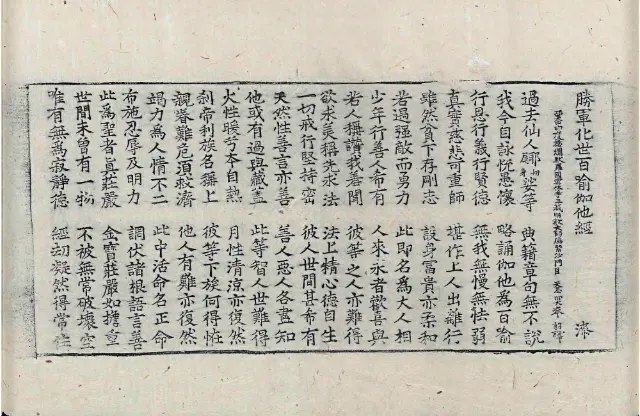 勝軍化世百喻伽他經　漆
過去仙人娑等　典籍章句無不說
我今自詠恍愚懷　略誦伽他為百喻
行恩行義行賢德　無我無慢無怯弱
真實慈悲可重師　堪作上人出離行
雖然貪下存剛志　設身富貴亦柔和
若遇强敵而勇力　此即名為大人相
少年行善人希有　人來求者歡喜與
若人稱讚我善聞　彼善之人亦難得
欲求美稱先求法　法上精心德自生
一切戒行堅持密　彼人世間甚希有
天然性善言亦善　善人惡人各盡知
他或有過與藏蓋　此等智人世難得
火性暖兮本自熱　月性清涼亦復然
剎帝利族名稱上　彼等下族何得恠
親眷難危須救濟　他人有難亦復然
竭力為人情不二　此中活命名正命
布施忍辱及明力　調伏諸根語言善
此為聖者真莊嚴　金寶莊嚴如擔重
世間未曾有一物　不被無常破壞空
唯有無為寂靜德　經劫凝然得常住